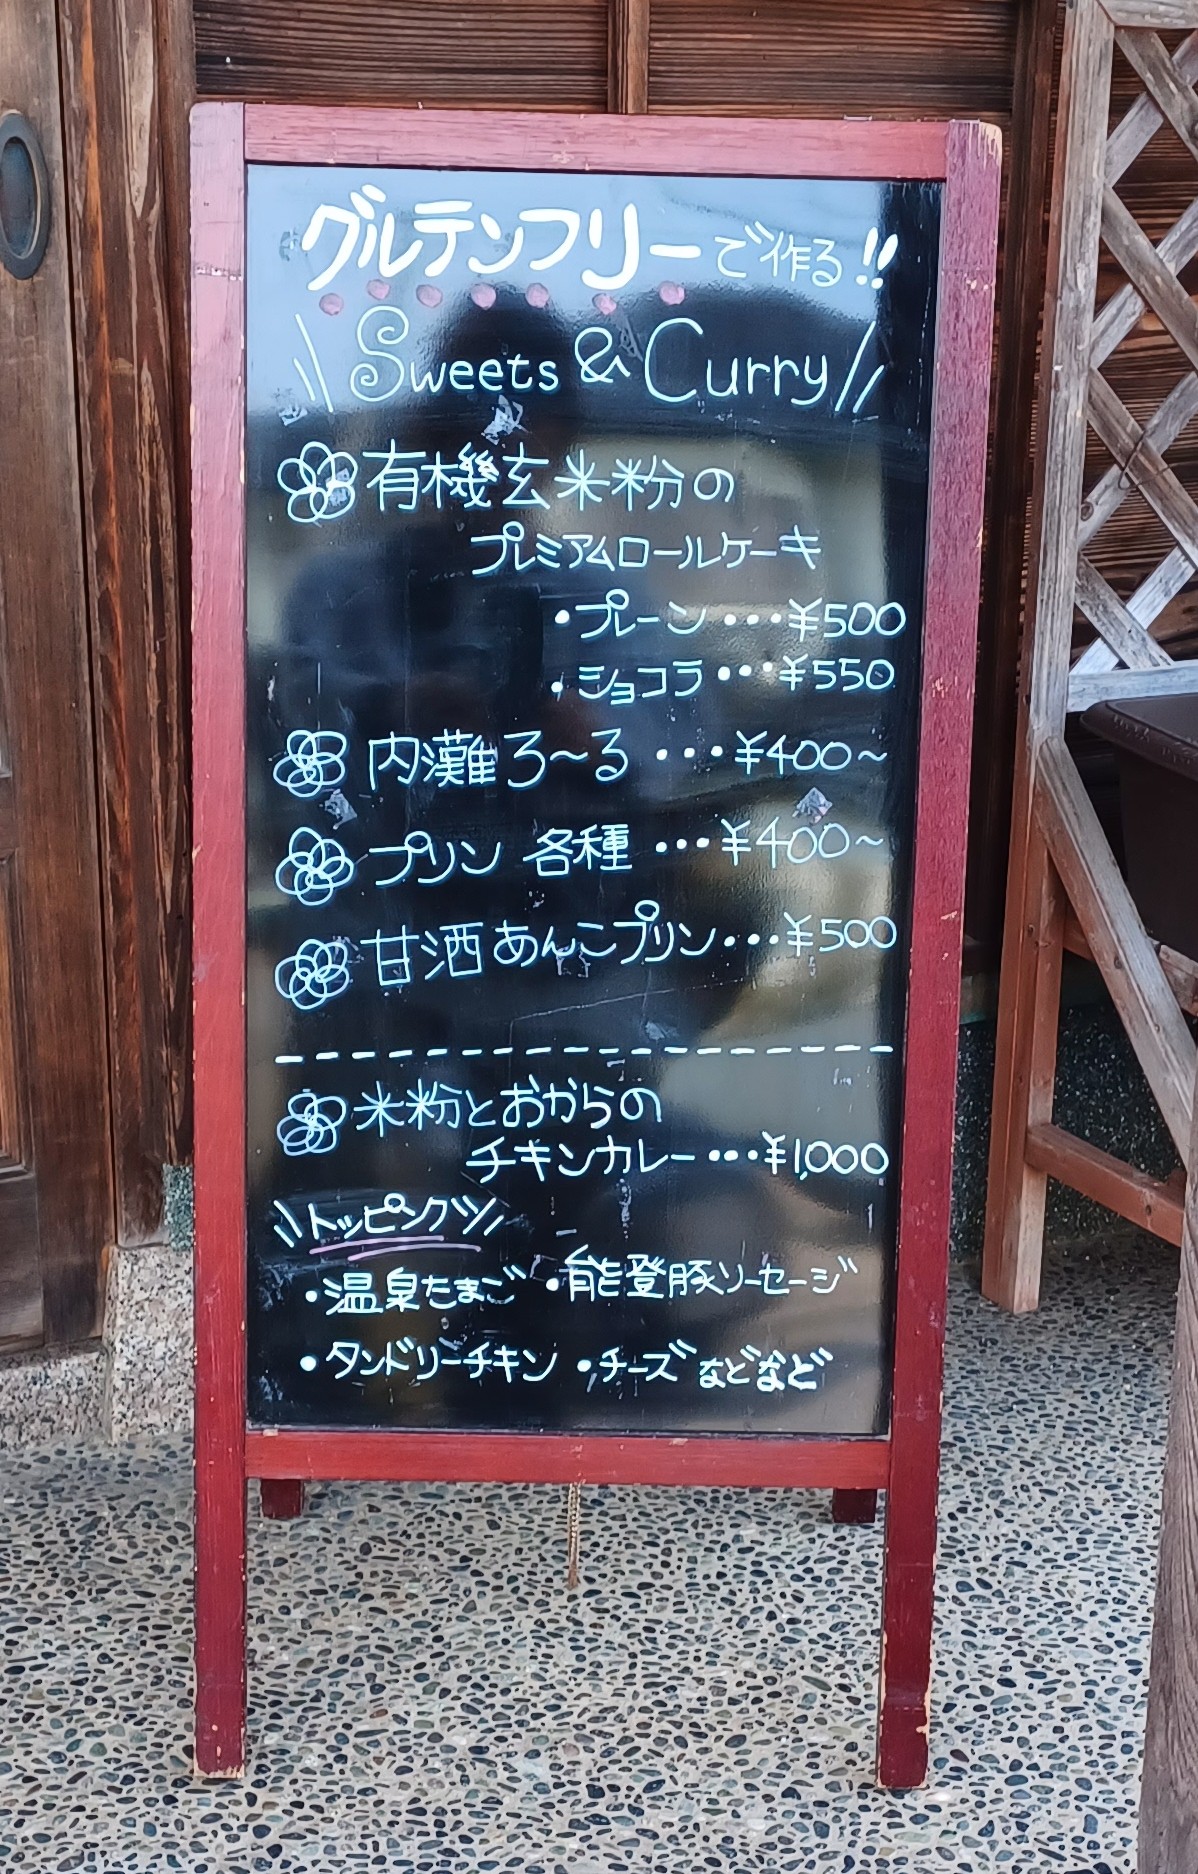 グルテンフリーで作る!!
\\ Sweets & Curry //
有機玄米粉の
プレミアムロールケーキ
・プレーン・・・¥500
・ショコラ・・・¥550
内灘ろ~る・・・¥400~
プリン 各種・・・¥400~
甘酒あんこプリン・・・¥500
米粉とおからの
チキンカレー・・・¥1,000
\\トッピング//
・温泉たまご ・能登豚ソーセージ
・タンドリーチキン ・チーズなどなど